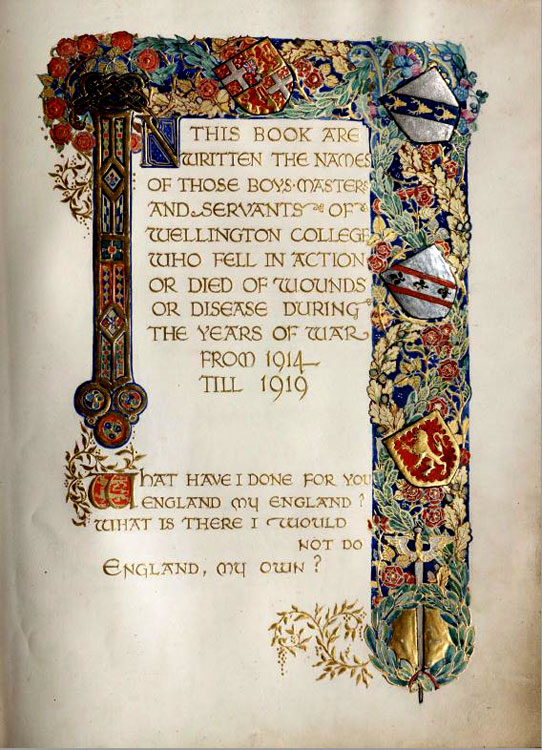 IN THIS BOOK ARE
WRITTEN THE NAMES
OF THOSE BOYS·MASTERS
AND SERVANTS OF
WELLINGTON COLLEGE
WHO FELL IN ACTION
OR DIED OF WOUNDS
OR DISEASE DURING
THE YEARS OF WAR
FROM 1914
TILL 1919
WHAT HAVE I DONE FOR YOU
ENGLAND MY ENGLAND?
WHAT IS THERE I WOULD
NOT DO
ENGLAND, MY OWN?